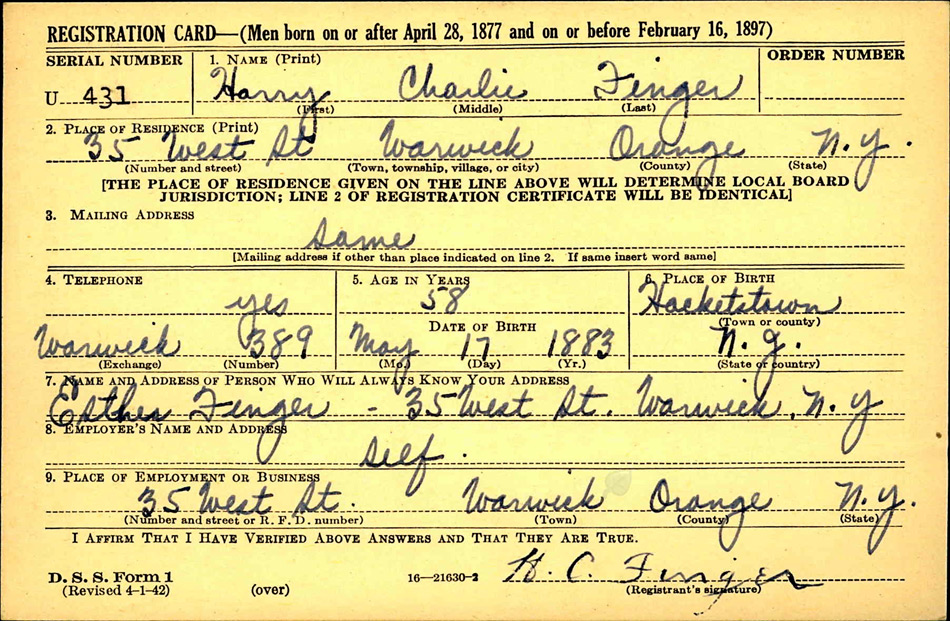 REGISTRATION CARD—(Men born on or after April 28, 1877 and on or before February 16, 1897)
SERIAL NUMBER 1. NAME (Print) ORDER NUMBER
U 431 Harry Charlie Finger
(First) (Middle) (Last)
2. PLACE OF RESIDENCE (Print)
35 West St Warwick Orange N.Y.
(Number and street) (Town, township, village, or city) (County) (State)
[THE PLACE OF RESIDENCE GIVEN ON THE LINE ABOVE WILL DETERMINE LOCAL BOARD
JURISDICTION; LINE 2 OF REGISTRATION CERTIFICATE WILL BE IDENTICAL]
3. MAILING ADDRESS
Same
[Mailing address if other than place indicated on line 2. If same insert word same]
4. TELEPHONE 5. AGE IN YEARS 6. PLACE OF BIRTH
yes 58 Hacketstown
DATE OF BIRTH (Town or county)
Warwick 389 May 17 1883 N.J.
(Exchange) (Number) (Mo.) (Day) (Yr.) (State or country)
7. NAME AND ADDRESS OF PERSON WHO WILL ALWAYS KNOW YOUR ADDRESS
Esther Finger - 35 West St. Warwick, N.Y
8. EMPLOYER'S NAME AND ADDRESS
Self.
9. PLACE OF EMPLOYMENT OR BUSINESS
35 West St. Warwick Orange N.Y.
(Number and street or R. F. D. number) (Town) (County) (State)
I AFFIRM THAT I HAVE VERIFIED ABOVE ANSWERS AND THAT THEY ARE TRUE.
D. S. S. Form 1 16—21630-2 H. C. Finger
(Revised 4-1-42) (over) (Registrant's signature)